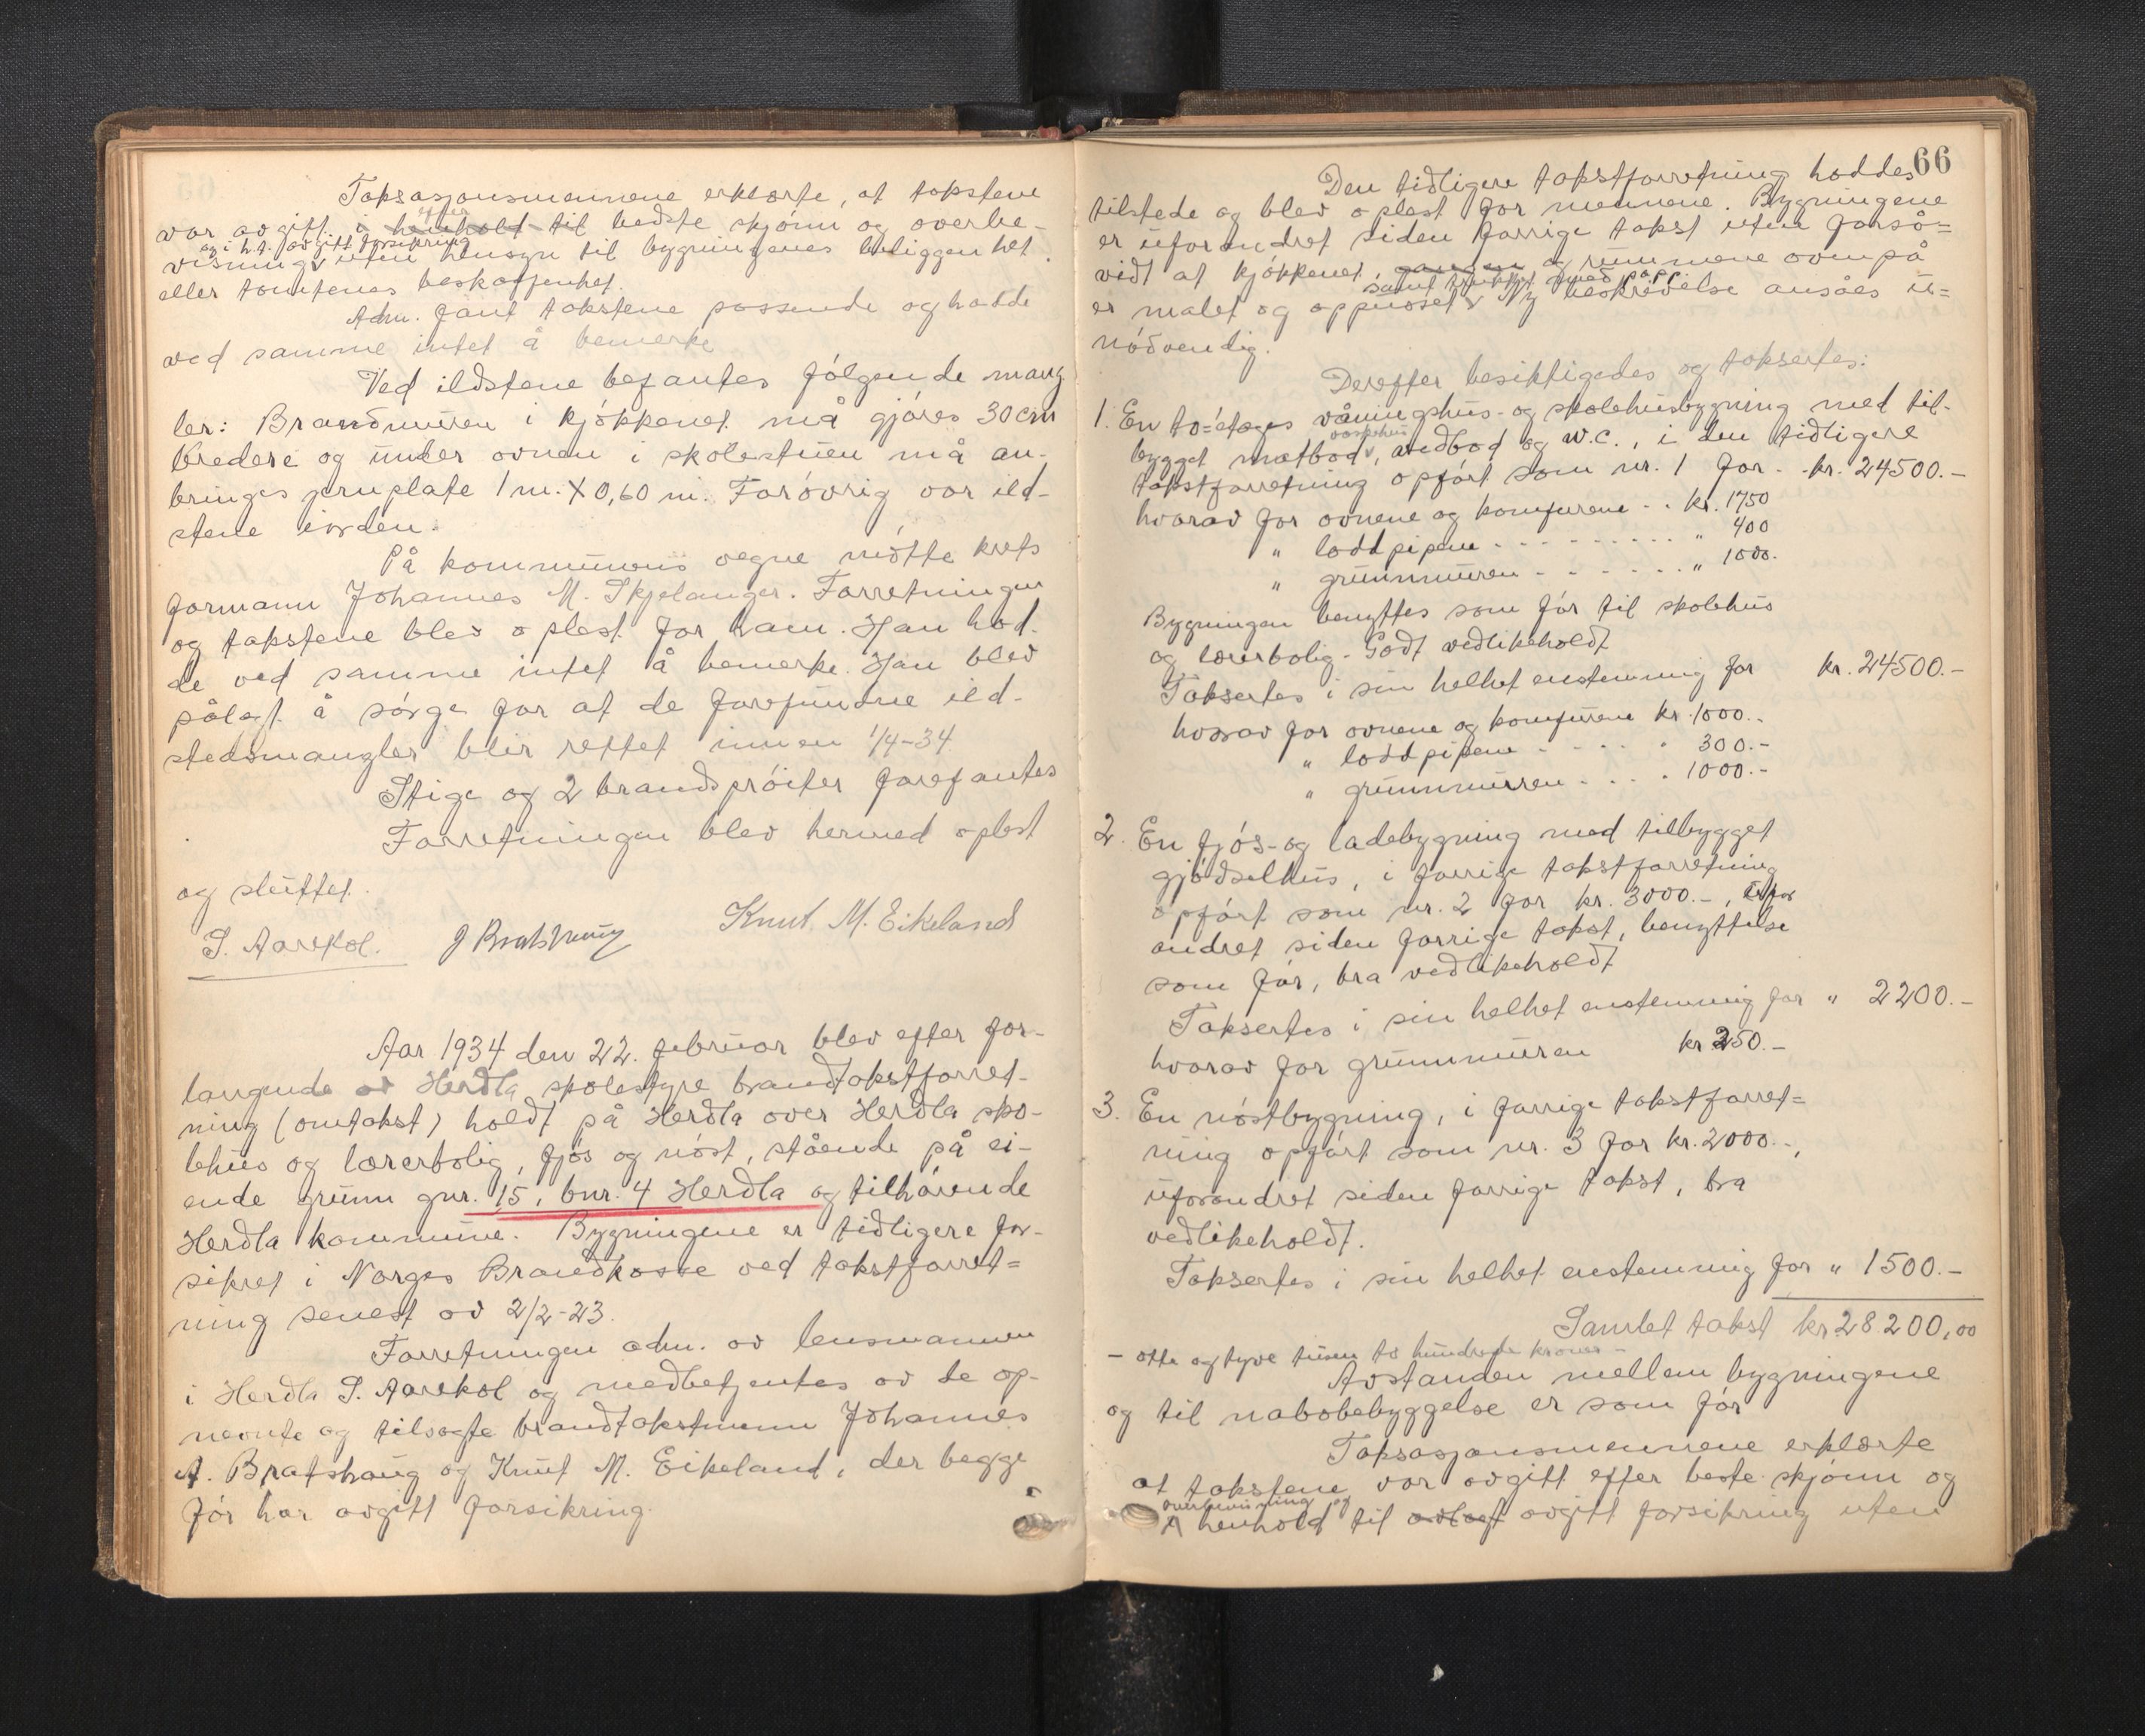 Taksasjonsmennene erklærte, at takstene
var avgitt i henhold til efter bedste skjønn og overbe-
visning og i h.t. avgitt forsikring uten hensyn til bygningenes beliggenhet
eller tomtenes beskaffenhet.
Adm. fant takstene passende og hadde
ved samme intet å bemerke
Ved ildstene befantes følgende mang
ler: Brandmuren i kjøkkenet må gjøres 30 cm
bredere og under ovnen i skolestuen må an-
bringes jernplate 1 m. X 0,60 m. Forøvrig var ild-
stene iorden.
På kommunens vegne møtte krets
formann Johannes M. Skjelanger. Forretningen
og takstene blev oplest for ham. Han had-
de ved samme intet å bemerke. Han blev
pålagt å sørge for at de forefundne ild-
stedsmangler blir rettet innen 1/4-34
Stige og 2 brandsprøiter forefantes
Forretningen blev hermed oplest
og sluttet.
S. Aarekol. J Bratshaug Knut M. Eikeland
Aar 1934 den 22. februar blev efter for-
langende av Herdla skolestyre brandtakstforret-
ning (omtakst) holdt på Herdla over Herdla sko-
lehus og lærerbolig, fjøs og nøst, stående på ei-
ende grunn gnr. 15, bnr. 4 Herdla og tilhørende
Herdla kommune. Bygningene er tidligere for-
sikret i Norges Brandkasse ved takstforret=
ning senest av 2/2-23.
Forretningen adm. av lensmannen
i Herdla S. Aarekol og medbetjentes av de op-
nevnte og tilsagte brandtakstmenn Johannes
A. Bratshaug og Knut M. Eikeland, der begge
før har avgitt forsikring.
66
Den tidligere takstforretning haddes
tilstede og blev oplest for mennene. Bygningene
er uforandret siden forrige takst uten forså=
vidt at kjøkkenet, gangen og rummene ovenpå
er malet og oppusset samt trukket med papp. Ny beskrivelse ansåes u=
nødvendig.
Derefter besiktigedes og taksertes:
1. En to=etages våningshus- og skolehusbygning med til-
bygget matbod, vaskehus, vedbod og W.C., i den tidligere
takstforretning opført som nr. 1 for - kr. 24500.-
hvorav for ovnene og komfurene - - kr. 1750
" loddpipene - - - - - - - - - " 400
" grunnmuren - - - - - - " 1000.
Bygningen benyttes som før til skolehus
og lærerbolig. Godt vedlikeholdt
Taksertes i sin helhet enstemmig for kr. 24500.-
hvorav for ovnene og komfurene kr. 1000.-
" loddpipene - - - - - 300.-
" grunnmuren - - - - 1000.-
2. En fjøs- og ladebygning med tilbygget
gjødselhus, i forrige takstforretning
opført som nr. 2 for kr. 3000.-, ufor
andret siden forrige takst, benyttelse
som før, bra vedlikeholdt
Taksertes i sin helhet enstemmig for " 2200.-
hvorav for grunnmuren kr 250.-
3. En nøstbygning, i forrige takstforret=
ning opført som nr. 3 for kr. 2000.-,
uforandret siden forrige takst, bra
vedlikeholdt.
Taksertes i sin helhet enstemmig for " 1500.-
Samlet takst kr. 28 200,00
- otte og tyve tusen to hundrede kroner -
Avstanden mellem bygningene
og til nabobebyggelse er som før
Taksasjonsmennene erklærte
at takstene var avgitt efter beste skjønn og
overbevisning og i henhold til avlagt avgitt forsikring uten